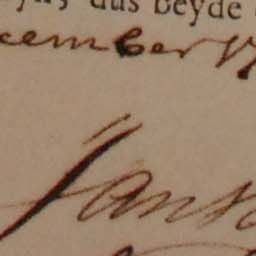 dus beyde
cember 17
Jans